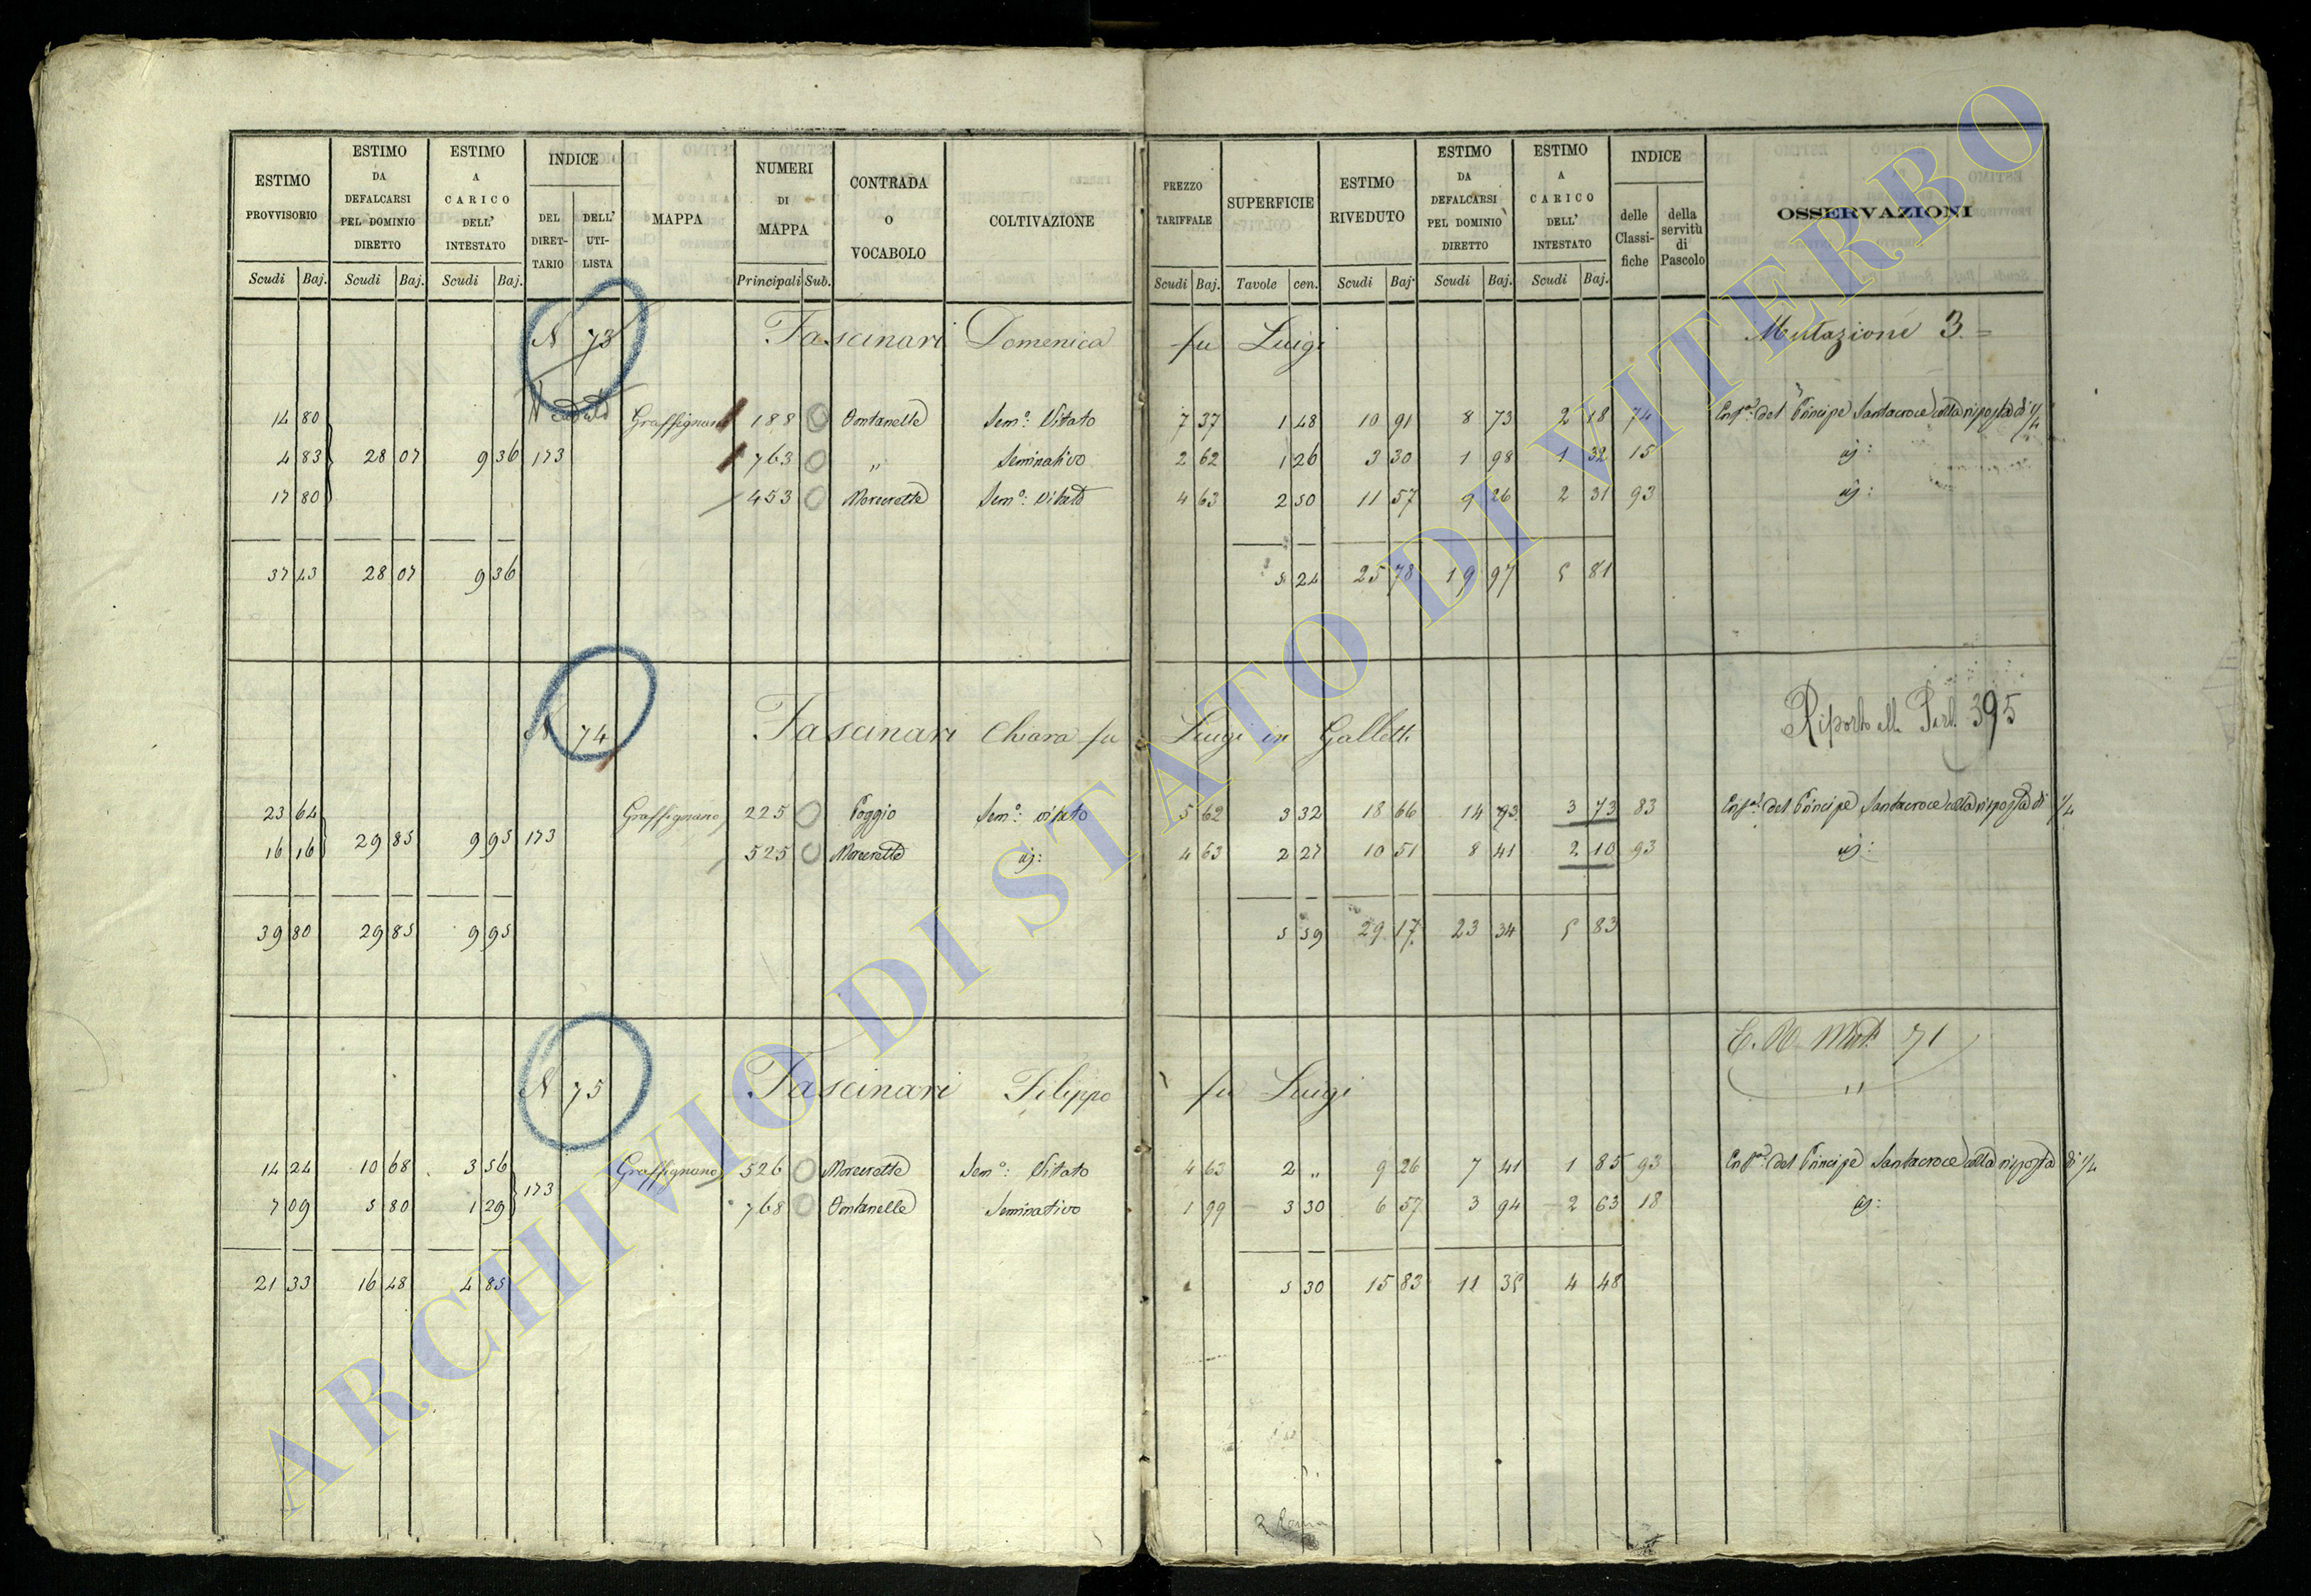 ESTIMO PROVVISORIO | ESTIMO DA DEFALCARSI PEL DOMINIO DIRETTO | ESTIMO A CARICO DELL' INTESTATO | INDICE | MAPPA | NUMERI DI MAPPA | CONTRADA O VOCABOLO | COLTIVAZIONE | PREZZO TARIFFALE | SUPERFICIE | ESTIMO RIVEDUTO | ESTIMO DA DEFALCARSI PEL DOMINIO DIRETTO | ESTIMO A CARICO DELL' INTESTATO | INDICE | OSSERVAZIONI
DEL DIRETTARIO | DELL' UTILISTA | delle Classifiche | della servitù di Pascolo
Scudi Baj. | Scudi Baj. | Scudi Baj. | Principali Sub. | Scudi Baj. | Tavole cen. | Scudi Baj. | Scudi Baj. | Scudi Baj.
N 73 Fascinari Domenica fu Luigi Mutazione 3.=
14 80 Graffignano 188 Sem.o: Vitato 7 37 1 48 10 91 8 73 2 18 74 del Principe Santacroce colla risposta di 1/4
4 83 28 07 9 36 173 763 „ Seminativo 2 62 1 26 3 30 1 98 1 32 15
17 80 453 Morecrette Sem.o: Vitato 4 63 2 50 11 57 9 26 2 31 93
37 43 28 07 9 36 5 24 25 78 19 97 5 81
N 74 Fascinari Chiara fu Luigi in Galletti Riporto alla Part. 395
23 64 Graffignano 225 Poggio Sem.o: vitato 5 62 3 32 18 66 14 93 3 73 83 del Principe Santacroce colla risposta di 1/4
16 16 29 85 9 95 173 525 Morecrette 4 63 2 27 10 51 8 41 2 10 93
39 80 29 85 9 95 5 59 29 17 23 34 5 83
71
N 75 Fascinari Filippo fu Luigi
14 24 10 68 3 56 Graffignano 526 Morecrette Sem.o: Vitato 4 63 2 „ 9 26 7 41 1 85 93 del Principe Santacroce colla risposta di 1/4
7 09 5 80 1 29 173 768 Seminativo 1 99 3 30 6 57 3 94 2 63 18
21 33 16 48 4 85 5 30 15 83 11 35 4 48
ARCHIVIO DI STATO DI VITERBO